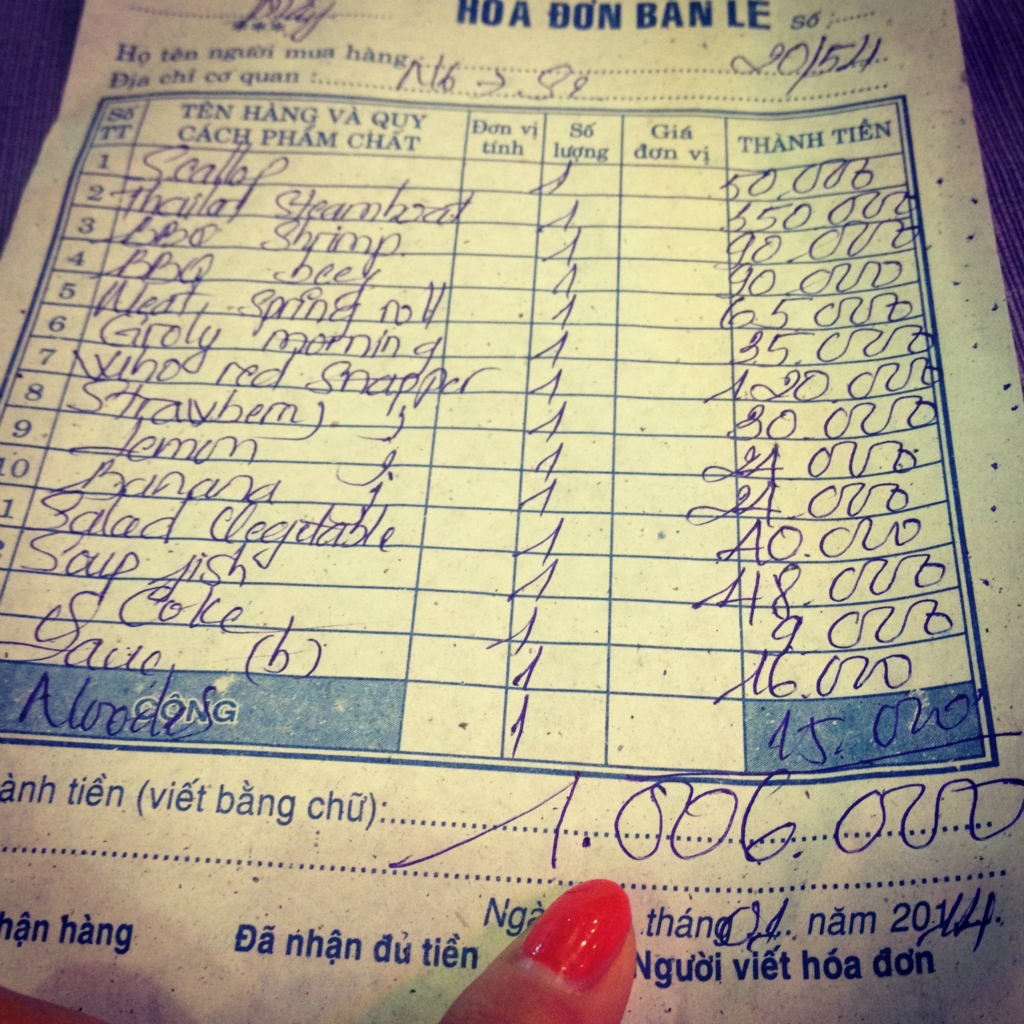 HÓA ĐƠN BÁN LẺ Số :
Họ tên người mua hàng 20/54
Địa chỉ cơ quan :
Số TT TÊN HÀNG VÀ QUY CÁCH PHẨM CHẤT Đơn vị tính Số lượng Giá đơn vị THÀNH TIỀN
1 Scallop 1 50.000
2 Thailad Steamboat 1 350.000
3 BBQ Shrimp 1 90.000
4 BBQ beef 1 90.000
5 Meat spring roll 1 65.000
6 morning 1 35.000
7 red snapper 1 120.000
8 j 1 30.000
9 lemon j 1 24.000
10 Banana j 1 24.000
1 Salad Vegetable 1 40.000
Soup fish 1 48.000
Coke 1 9.000
(b) 1 16.000
CỘNG 1 15.000
ành tiền (viết bằng chữ): 1.006.000
Ngà tháng 01 năm 2014
hận hàng Đã nhận đủ tiền Người viết hóa đơn